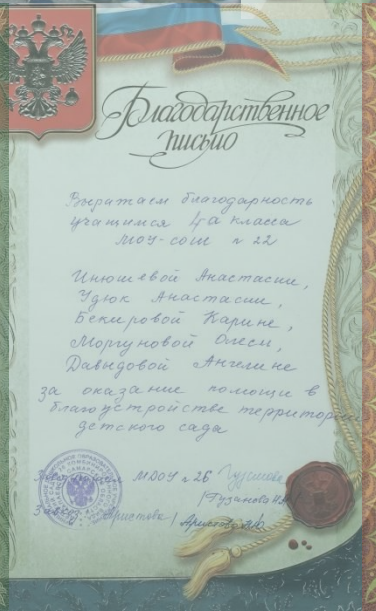 Благодарственное
письмо
Выражаем благодарность
учащимся 4а класса
МОУ-СОШ №22
Инюшевой Анастасии,
Удюк Анастасии,
Бекировой Карине,
Моргуновой Олеси,
Давыдовой Ангелине
за оказание помощи в
благоустройстве территории
детского сада
МДОУ №26